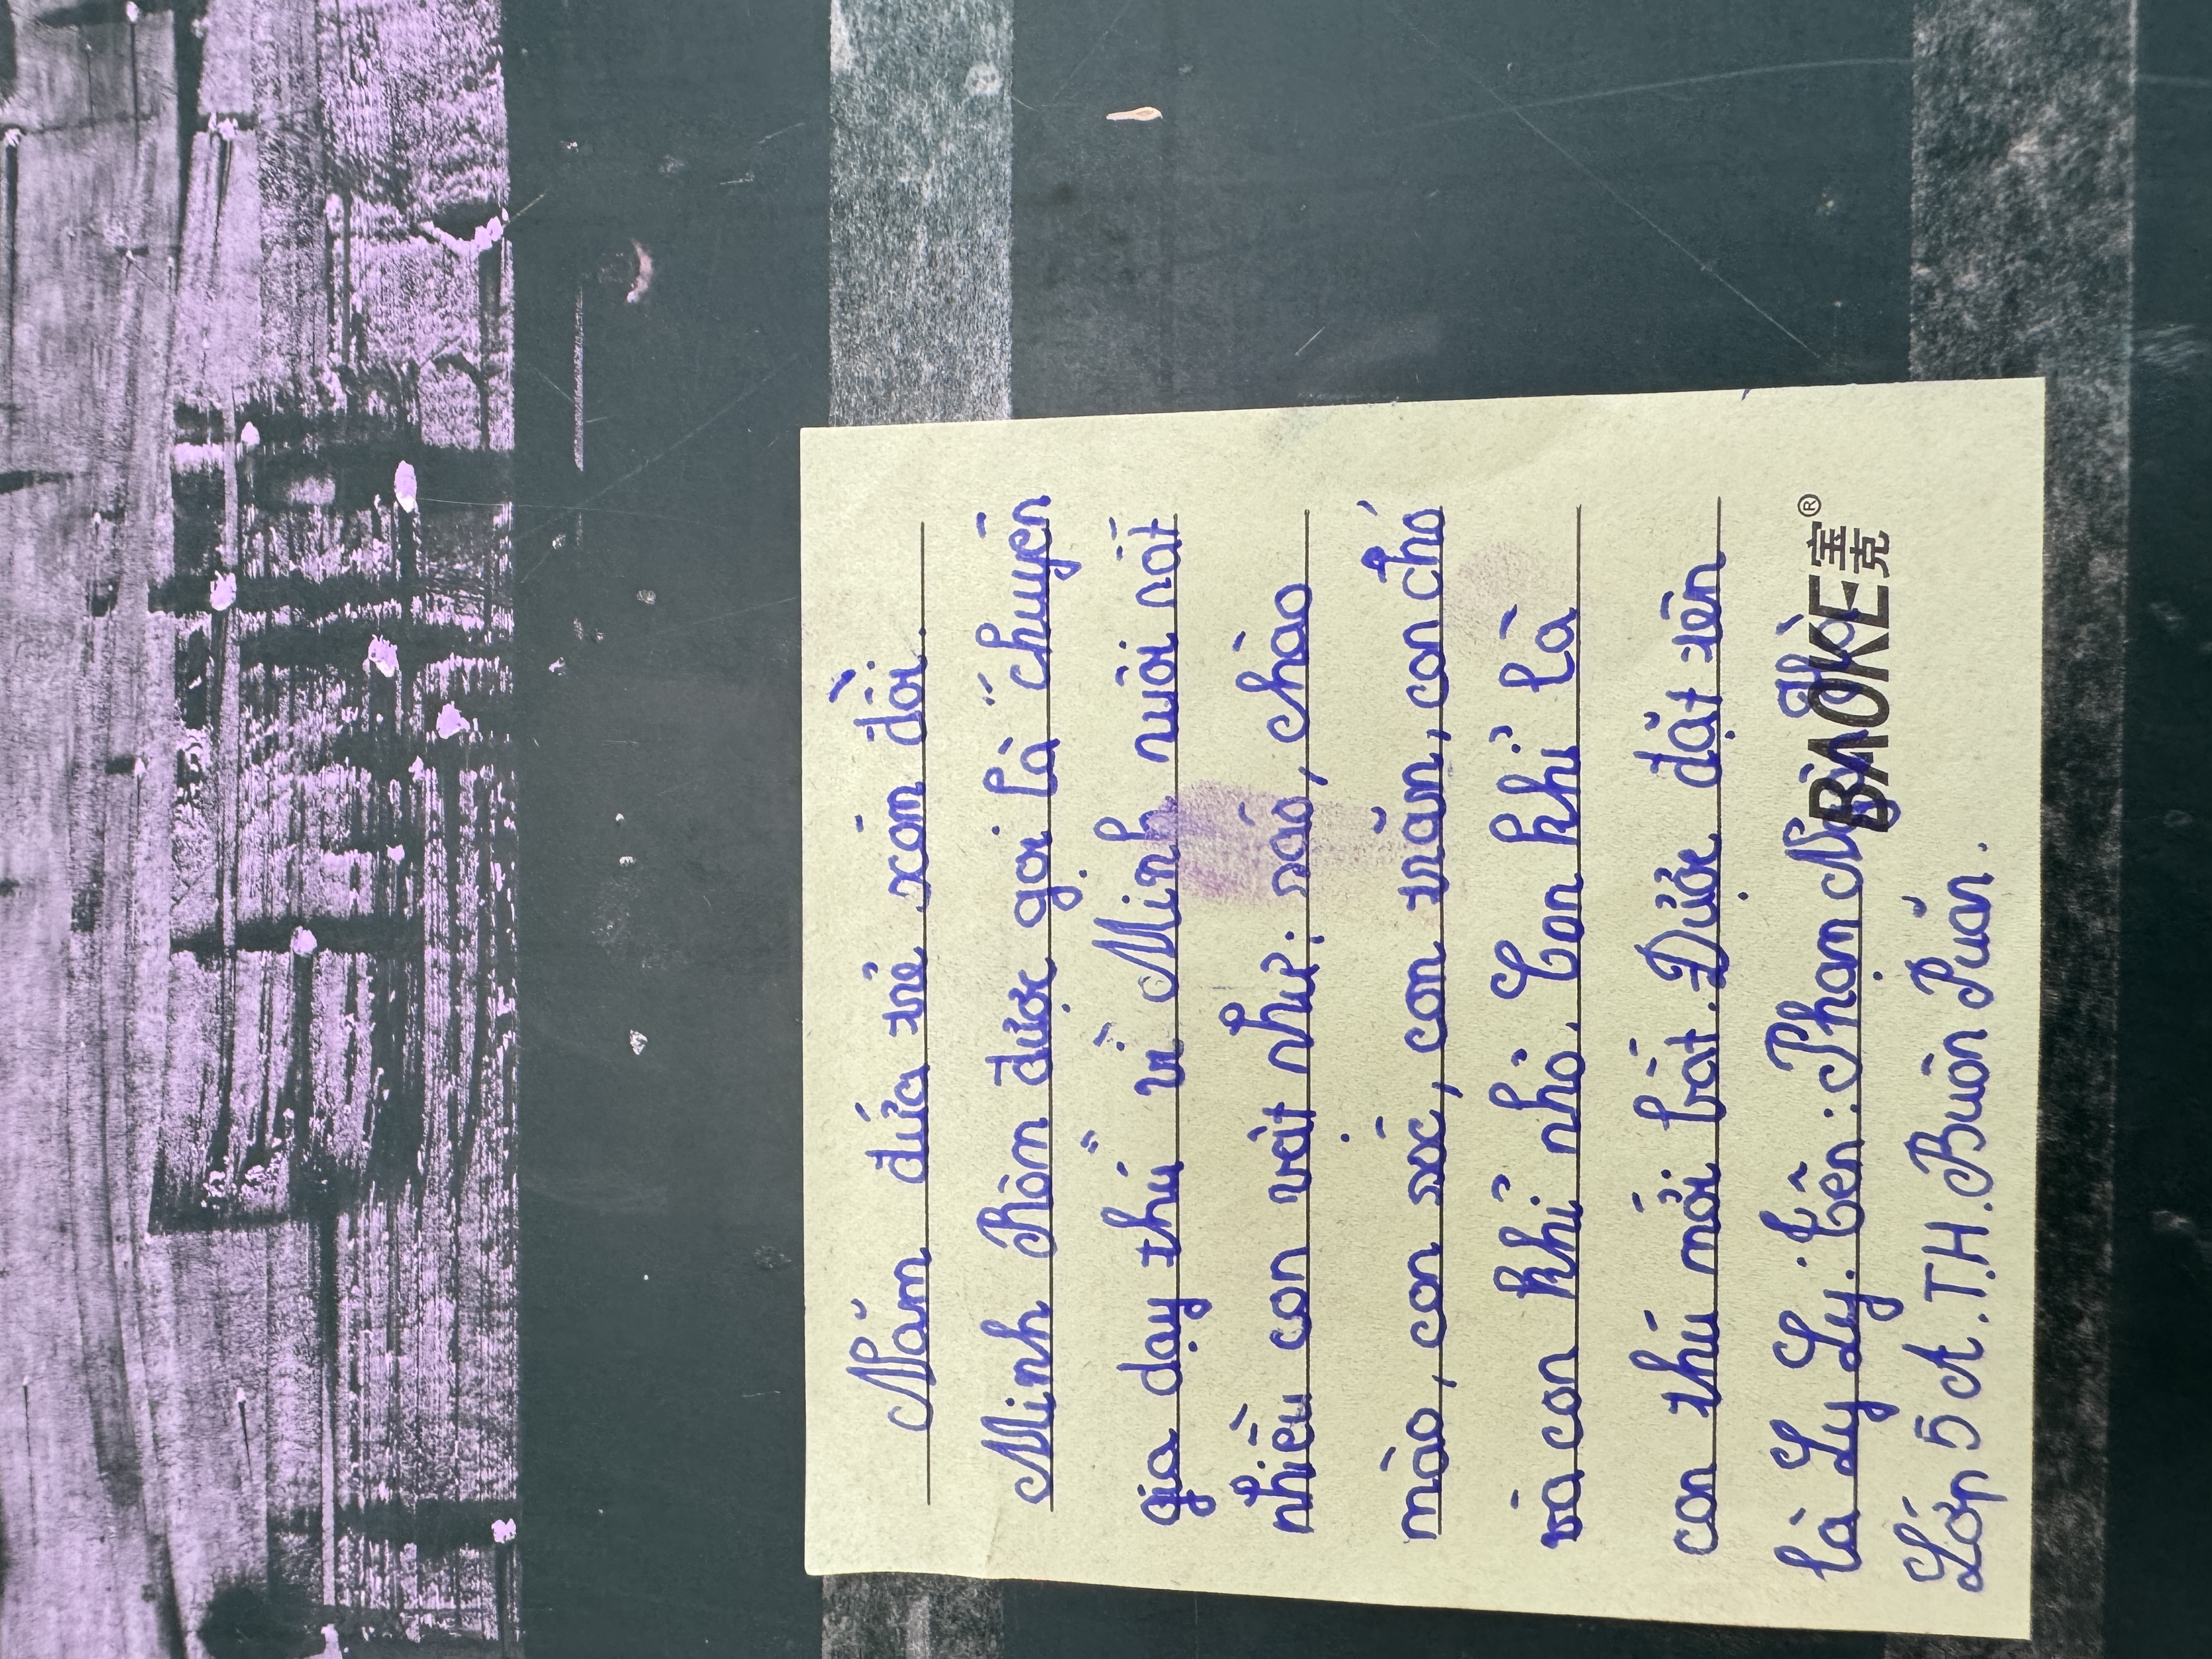 Năm đứa trẻ xóm đồi.
Minh Rôm được gọi là "chuyên
gia dạy thú" vì Minh nuôi rất
nhiều con vật như: sáo, chào
mào, con sóc, con trăn, con chó
và con khỉ nhỏ. Con khỉ là
con thú mới bắt. Được đặt tên
là Ly Ly. Tên: Phạm
Lớp 5A. T.H. Buôn Puăn.
BAOKE宝克®